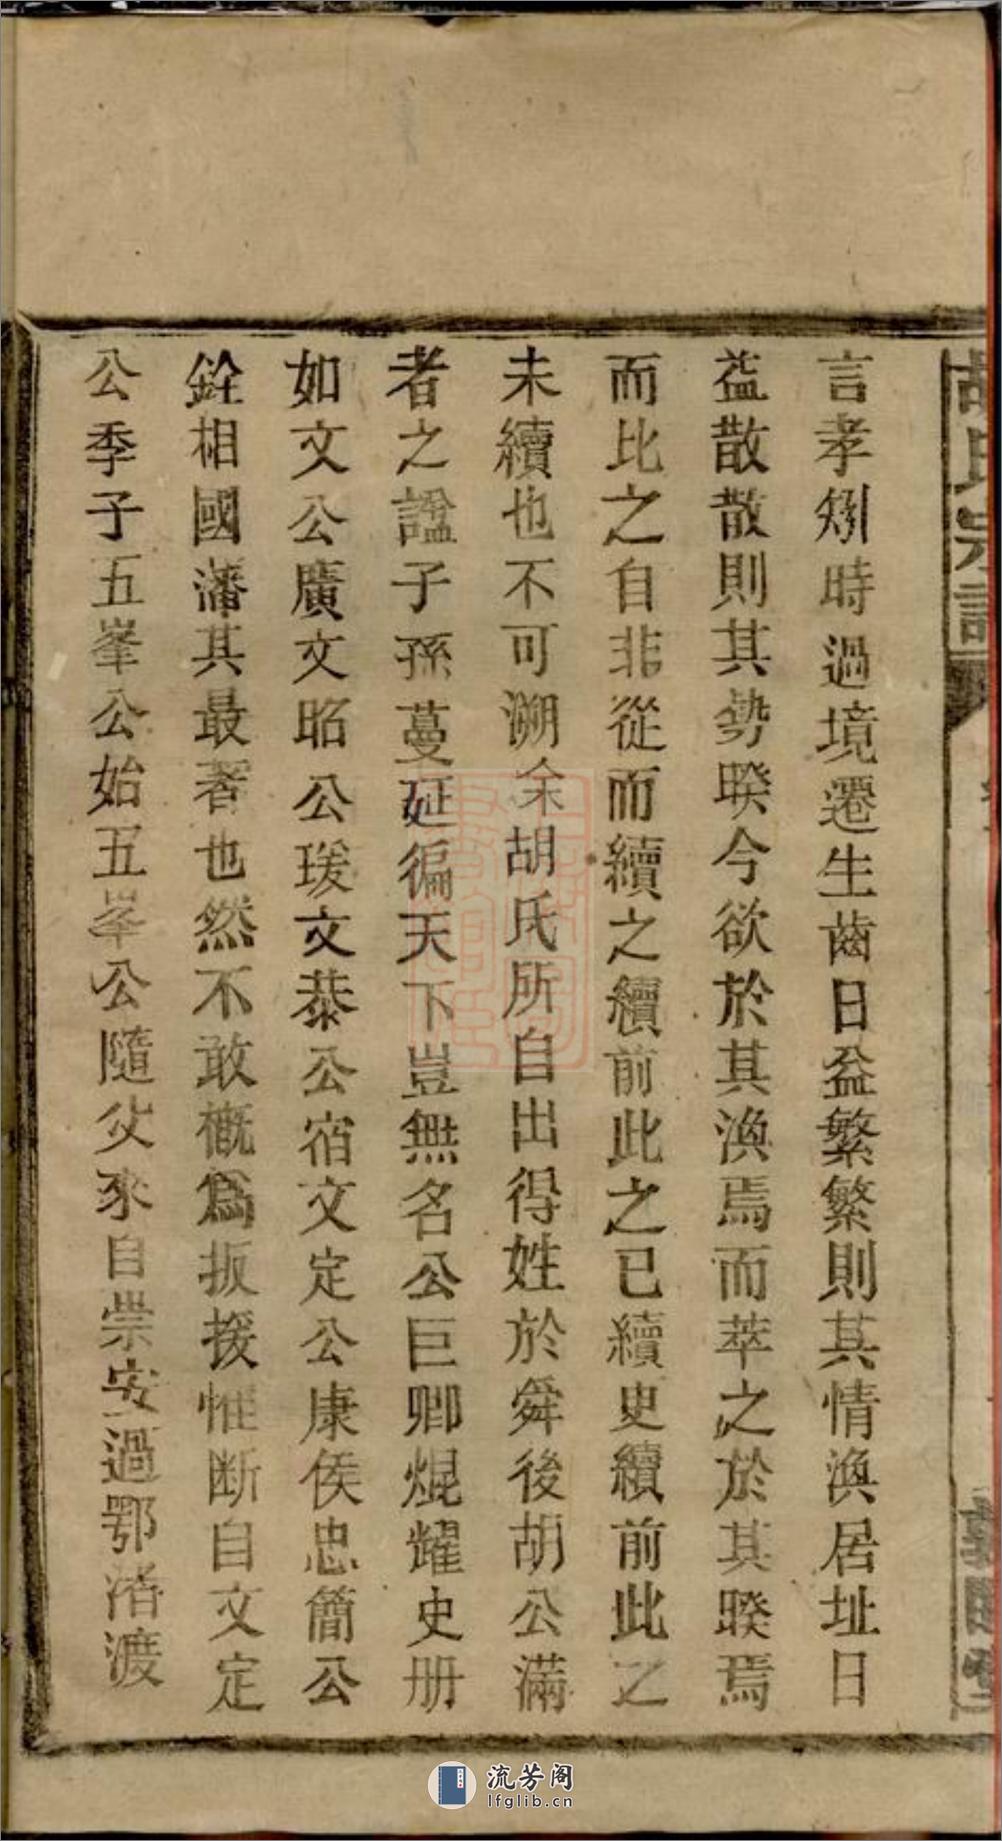 胡氏宗譜
敦睦堂
言孝矧時過境遷生齒日益繁繁則其情渙居址日
益散散則其勢暌今欲於其渙焉而萃之於其暌焉
而比之自非從而續之續前此之已續史續前此之
未續也不可溯余胡氏所自出得姓於舜後胡公滿
者之諡子孫蔓延徧天下豈無名公巨卿焜耀史册
如文公廣文昭公瑗文恭公宿文定公康侯忠簡公
銓相國濬其最著也然不敢概爲扳援惟断自文定
公季子五峯公始五峯公隨父來自崇安過鄂渚渡
流芳阁
lfglib.cn